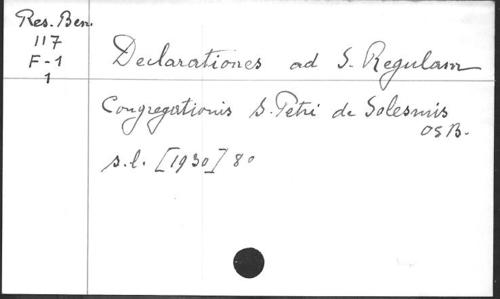 Res. Ben.
117
F-1
1
Declarationes ad S. Regulam
Congregationis S. Petri de Solesmis
OSB.
s.l. [1930] 8°